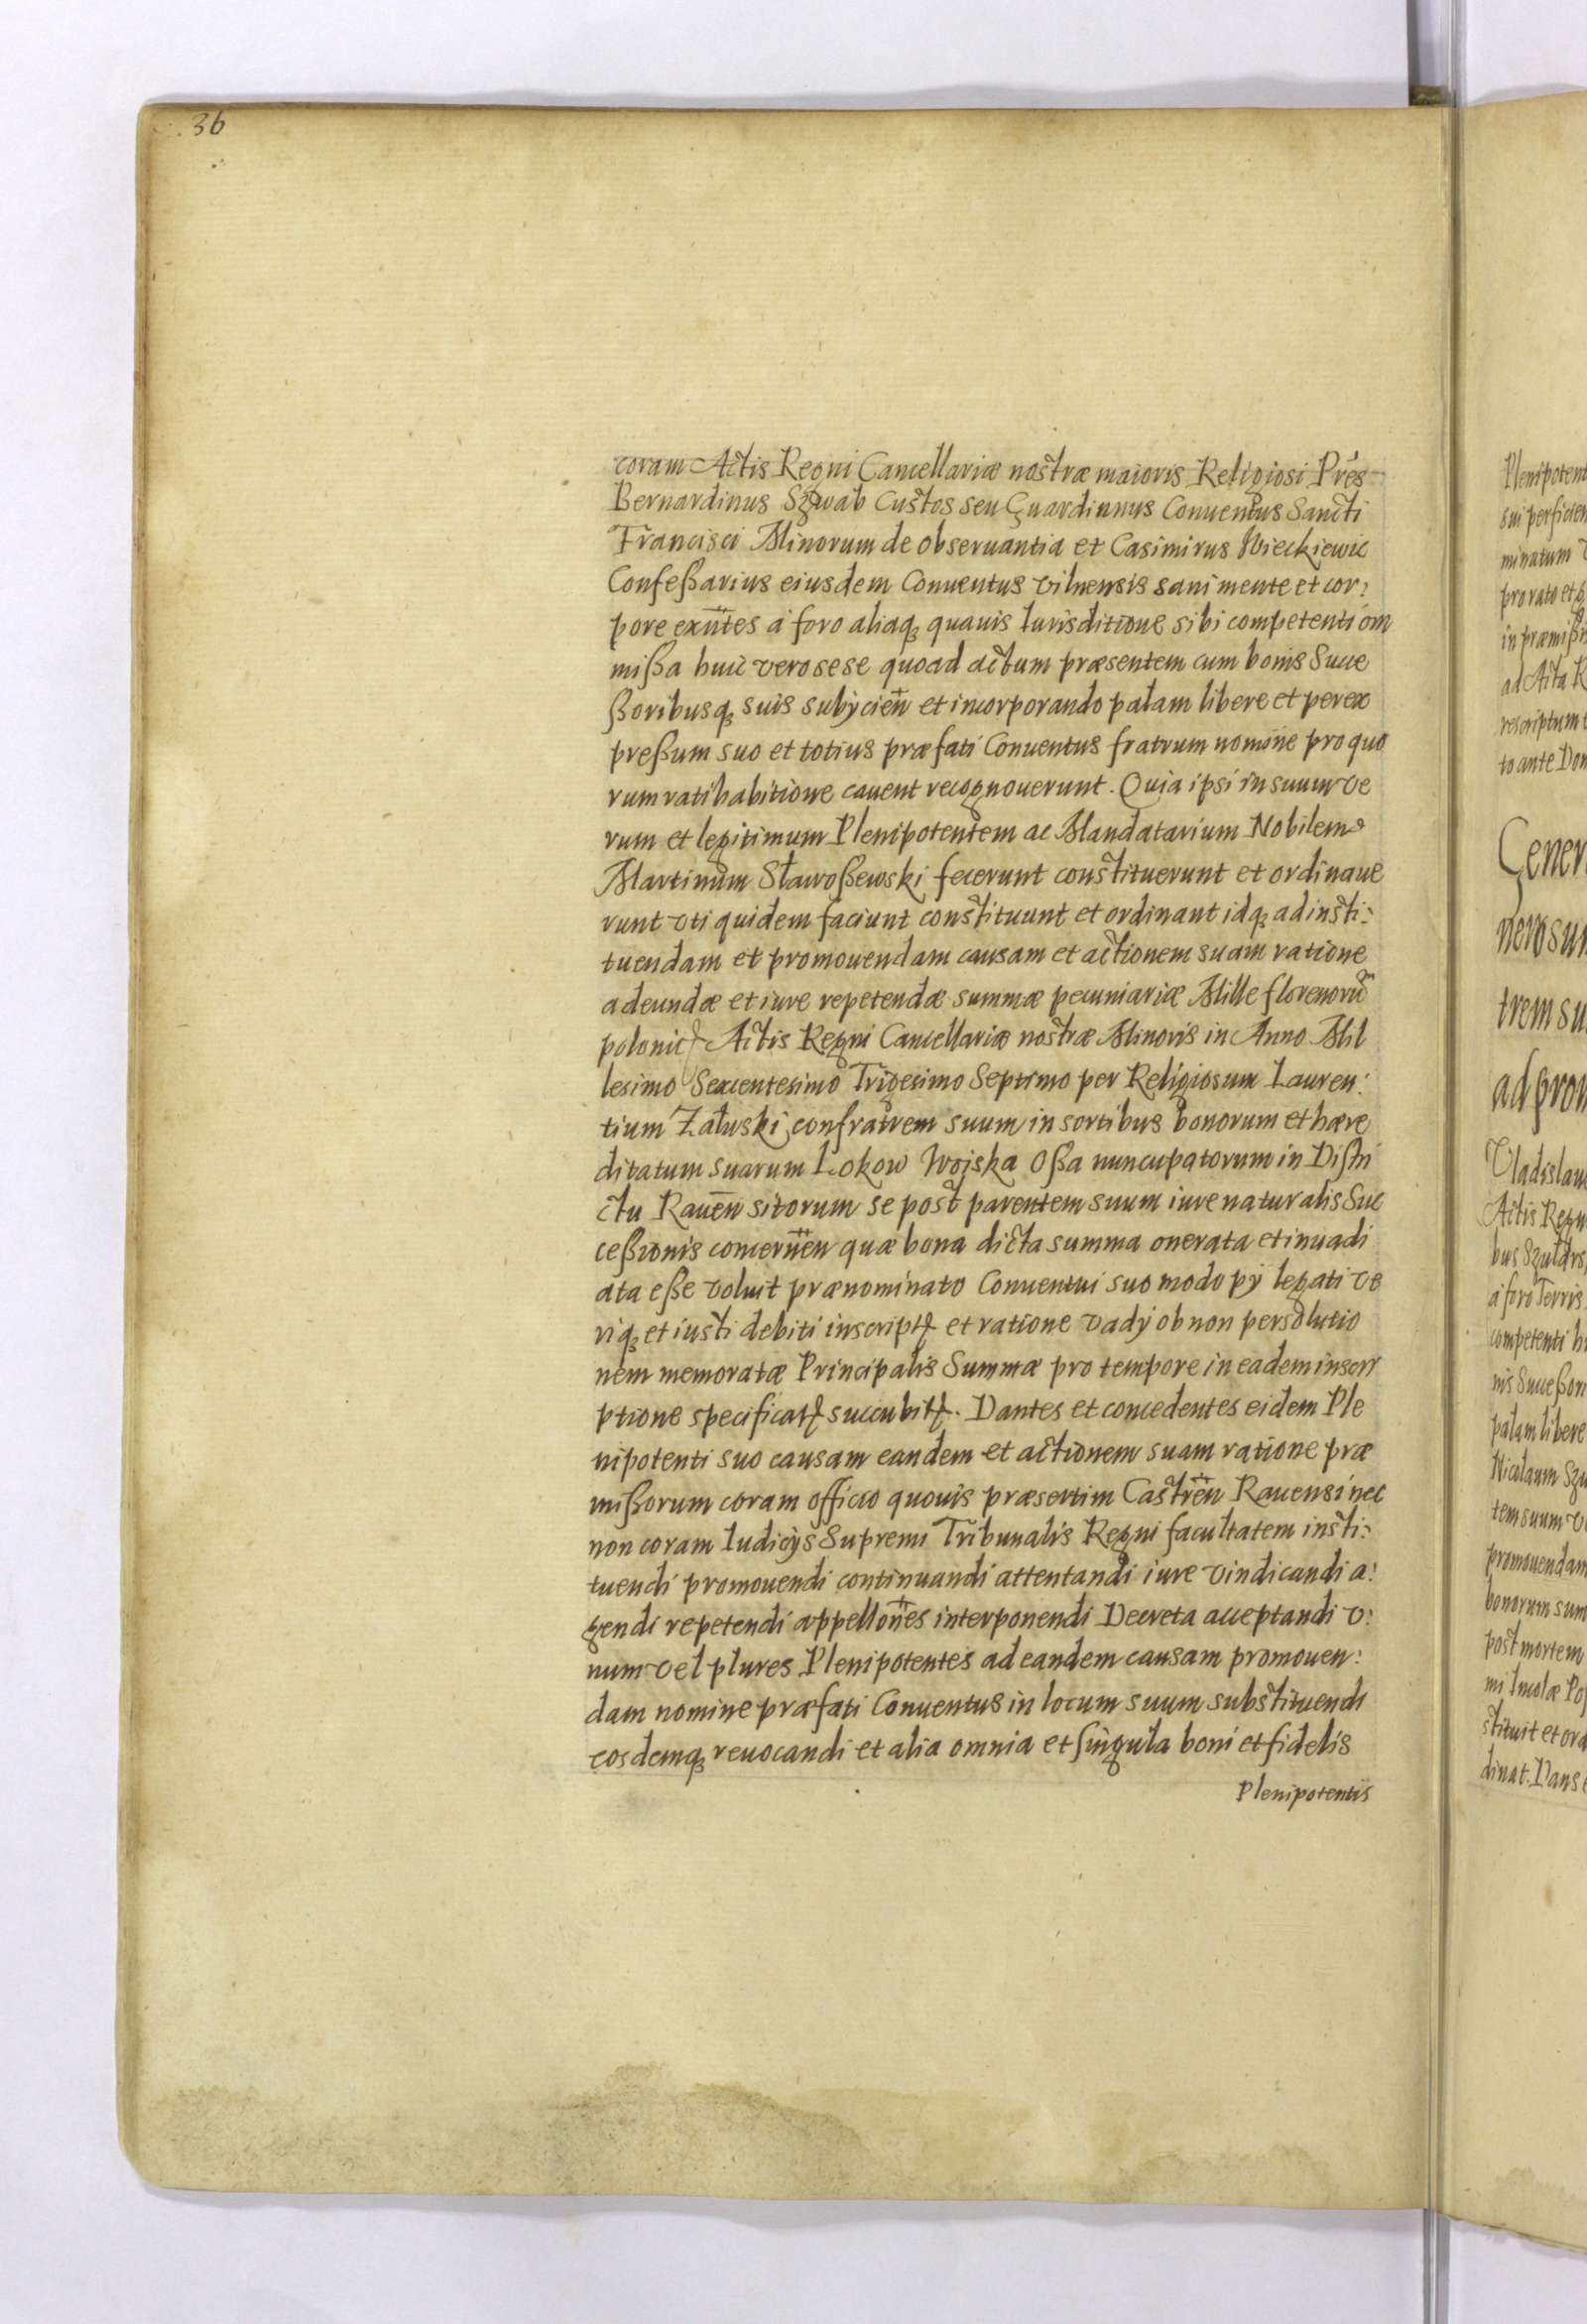 36
coram Actis Regni Cancellariæ nostræ maioris Religiosi Prẽs
Bernardinus Szwab Custos seu Guardianus Conuentus Sancti
Francisci Minorum de obseruantia et Casimirus
Confeßarius eiusdem Conuentus vilnensis sani mente et cor:
pore exn̄tes a foro aliaqꝫ quauis Iurisditione sibi competenti om
mißa huic vero sese quoad actum præsentem cum bonis Succe
ßoribusqꝫ suis subÿcien̄ et incorporando palam libere et per ex
preßum suo et totius præfati Conuentus fratrum nomine pro quo
rum ratihabitione cauent recognouerunt. Quia ipsi in suum ve
rum et legitimum Plenipotentem ac Mandatarium Nobilem
Martinum Sławoßewski fecerunt constituerunt et ordinaue
runt vti quidem faciunt constituunt et ordinant idqꝫ ad insti:
tuendam et promouendam causam et actionem suam ratione
adeundæ et iure repetendæ summæ pecuniariæ Mille florenorū
polonicꝭ Actis Regni Cancellariæ nostræ Minoris in Anno Mil
lesimo Sexcentesimo Trigesimo Septimo per Religiosum Lauren:
tium Załuski confratrem suum in sortibus bonorum et hære
ditatum suarum Lokow Woiska Oßa nuncupatorum in Distri
ctu Rauen̄ sitorum se post parentem suum iure naturalis Suc
ceßionis concernen̄ quæ bona dicta summa onerata et inuadi
ata eße voluit prænominato Conuentui suo modo pÿ legati ve
riqꝫ et iusti debiti inscriptꝭ et ratione vadÿ ob non persolutio
nem memoratæ Principalis Summæ pro tempore in eadem inscri
ptione specificatꝭ succubitꝭ. Dantes et concedentes eidem Ple
nipotenti suo causam eandem et actionem suam ratione præ
mißorum coram officio quouis præsertim Castren̄ Rauensi nec
non coram Iudicÿs Supremi Tribunalis Regni facultatem insti:
tuendi promouendi continuandi attentandi iure vindicandi a:
gendi repetendi appellon̄es interponendi Decreta acceptandi v:
num vel plures Plenipotentes ad eandem causam promouen:
dam nomine præfati Conuentus in locum suum substituendi
eosdemqꝫ reuocandi et alia omnia et singula boni et fidelis
Plenipotentis
Plenipotent
sui perficien
minatum
pro rato et
in præmiß
ad Acta R
rescriptum
to ante Dom
Gener
nerosum
trem su
ad prom
Vladislau
Actis Regn
bus
a foro Terris
competenti h
nis Succeßor
palam libere
Nicolaum Szu
tem suum v
promouendam
bonorum sum
post mortem
stituit et ord
dinat. Dans e